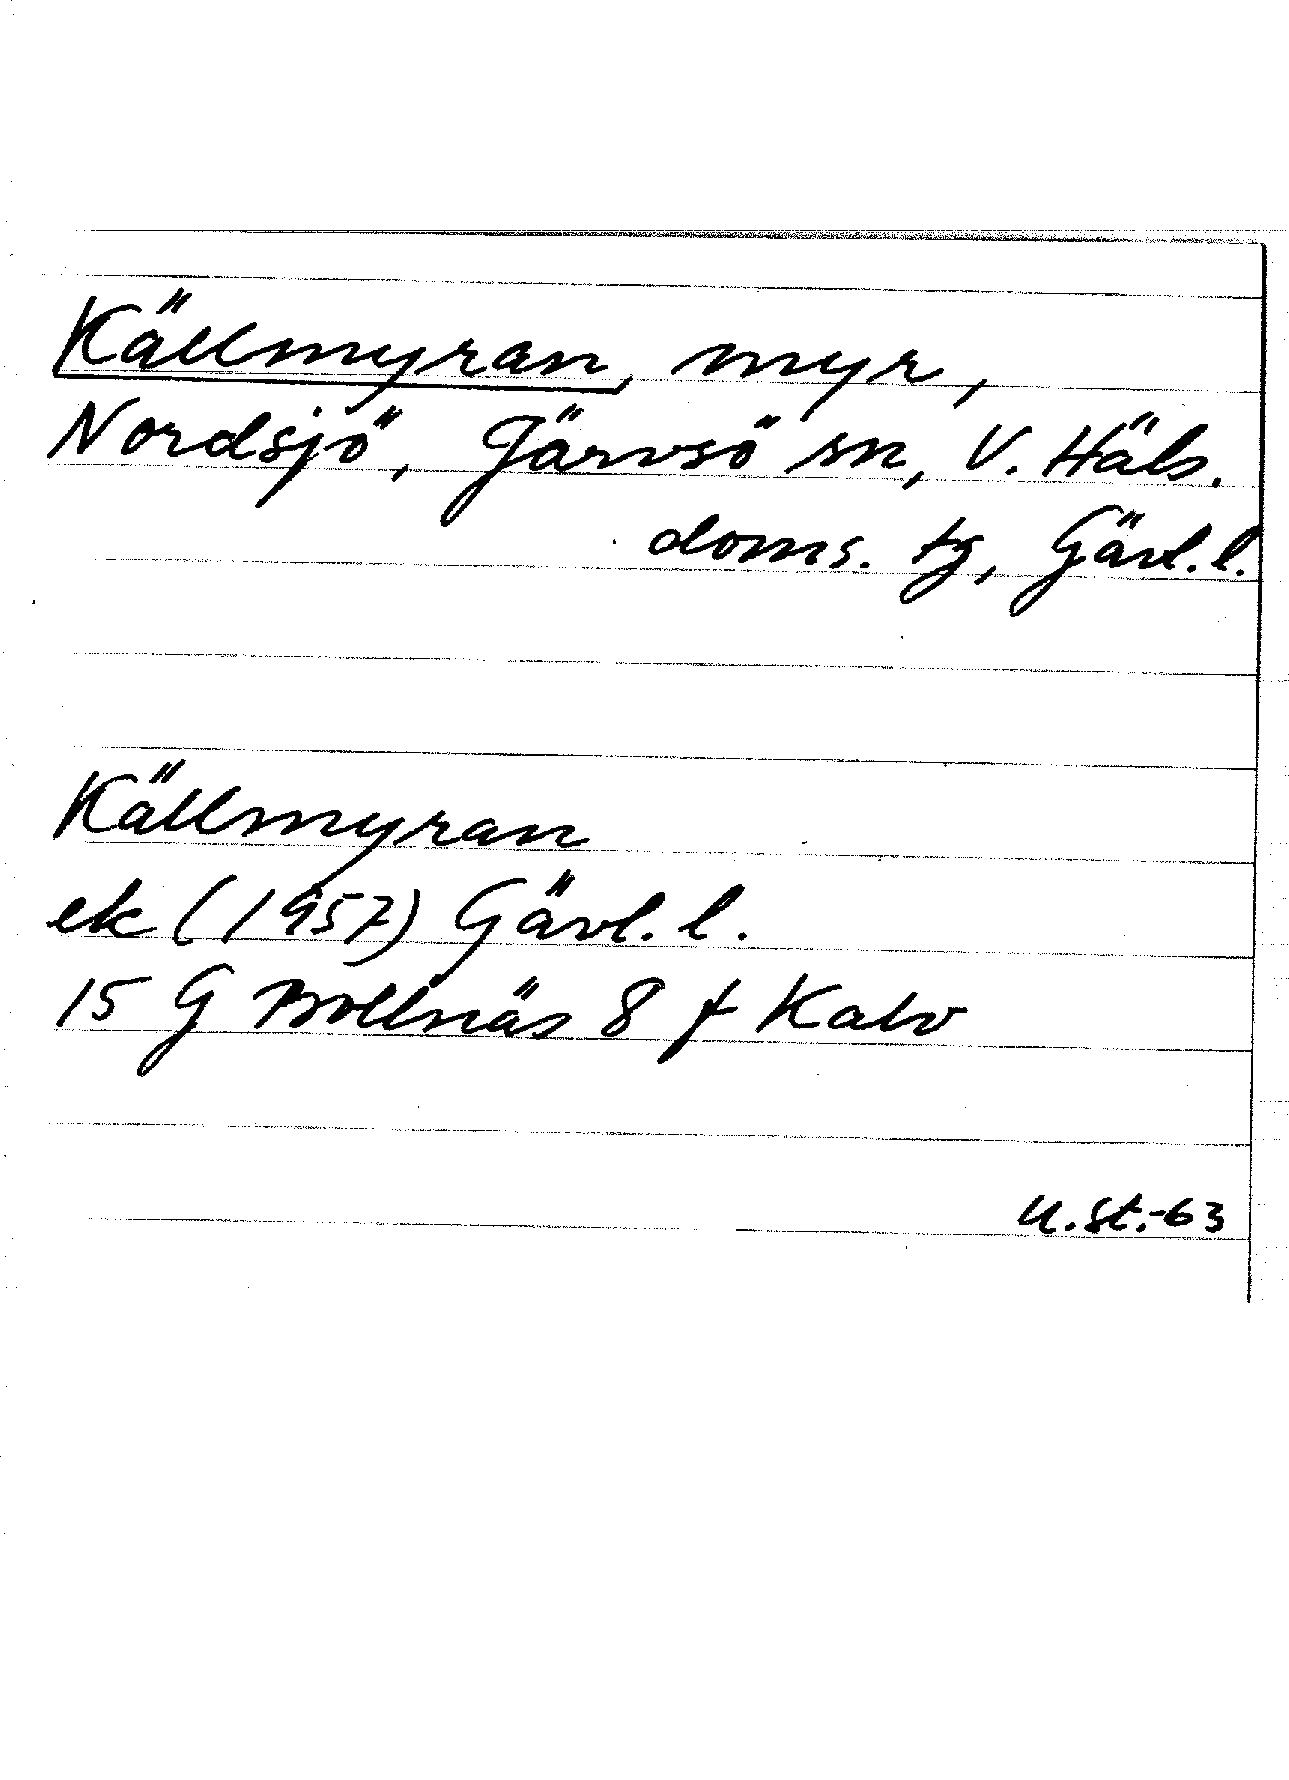 Källmyran, myr,
Nordsjö, Järvsö sn, V. Häls.
doms. tg, Gävl. l.
Källmyran
ek (1957) Gävl. l.
15 G Bollnäs 8 f Kalv
U.St.-63